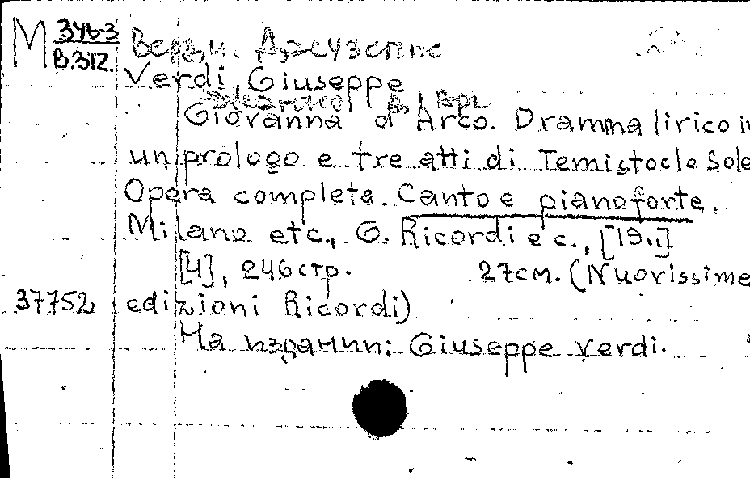 M 3463
В.312.
Верди, Джузеппе
Verdi Giuseppe
Giovanna d'Arco. Dramma lirico in
un prologo e tre atti di Temistocle Sole
Opera completa. Canto e pianoforte.
Milano etc., G. Ricordi e c., [19..]
[4], 246 стр. 27 см. (Nuovissime
37752 edizioni Ricordi)
На издании: Giuseppe Verdi.